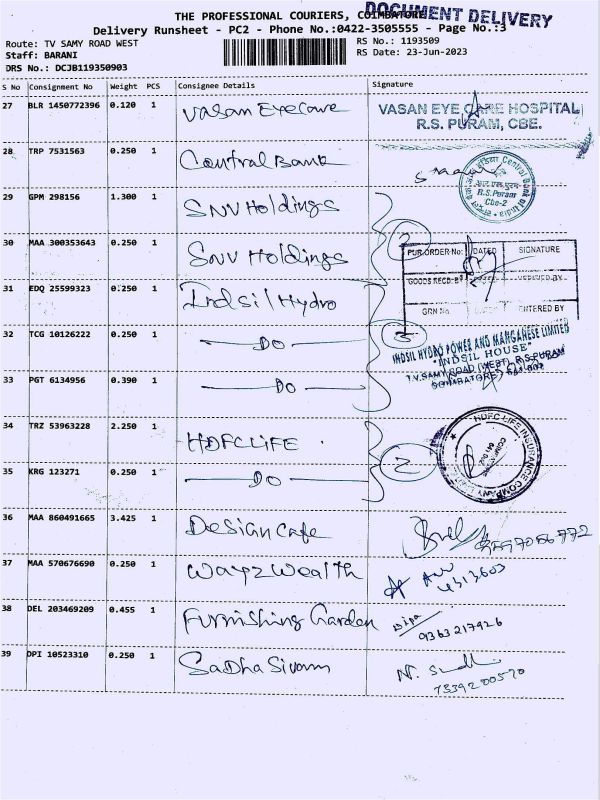 DOCUMENT DELIVERY
THE PROFESSIONAL COURIERS, COIMBATORE
Delivery Runsheet - PC2 - Phone No.:0422-3505555 - Page No.:3
Route: TV SAMY ROAD WEST
RS No.: 1193509
Staff: BARANI
RS Date: 23-Jun-2023
DRS No.: DCJB119350903
S No Consignment No Weight PCS Consignee Details Signature
27 BLR 1450772396 0.120 1 Vasan Eye Care
VASAN EYE CARE HOSPITAL
R.S. PURAM, CBE.
28 TRP 7531563 0.250 1 Central Bank
Central Bank of India
R.S. Puram
Cbe-2
29 GPM 298156 1.300 1 SNV Holdings
30 MAA 300353643 0.250 1 SNV Holdings
2
PUR.ORDER No: DATED SIGNATURE
GOODS RECD. BY
GRN No. ENTERED BY
31 EDQ 25599323 0.250 1 Indsil Hydro
32 TCG 10126222 0.250 1 DO
3
INDSIL HYDRO POWER AND MANGANESE LIMITED
"INDSIL HOUSE"
T.V. SAMY ROAD (WEST), R.S. PURAM
COIMBATORE - 641 002
33 PGT 6134956 0.390 1 DO
34 TRZ 53963228 2.250 1 HDFC LIFE
2
HDFC LIFE INSURANCE COMPANY LIMITED
35 KRG 123271 0.250 1 DO
36 MAA 860491665 3.425 1 Design Cafe
37 MAA 570676690 0.250 1 Wayz Wealth
4313603
38 DEL 203469209 0.455 1 Furnishing Garden
Dipa
9363217926
39 DPI 10523310 0.250 1 Sadha Sivam
7339200570